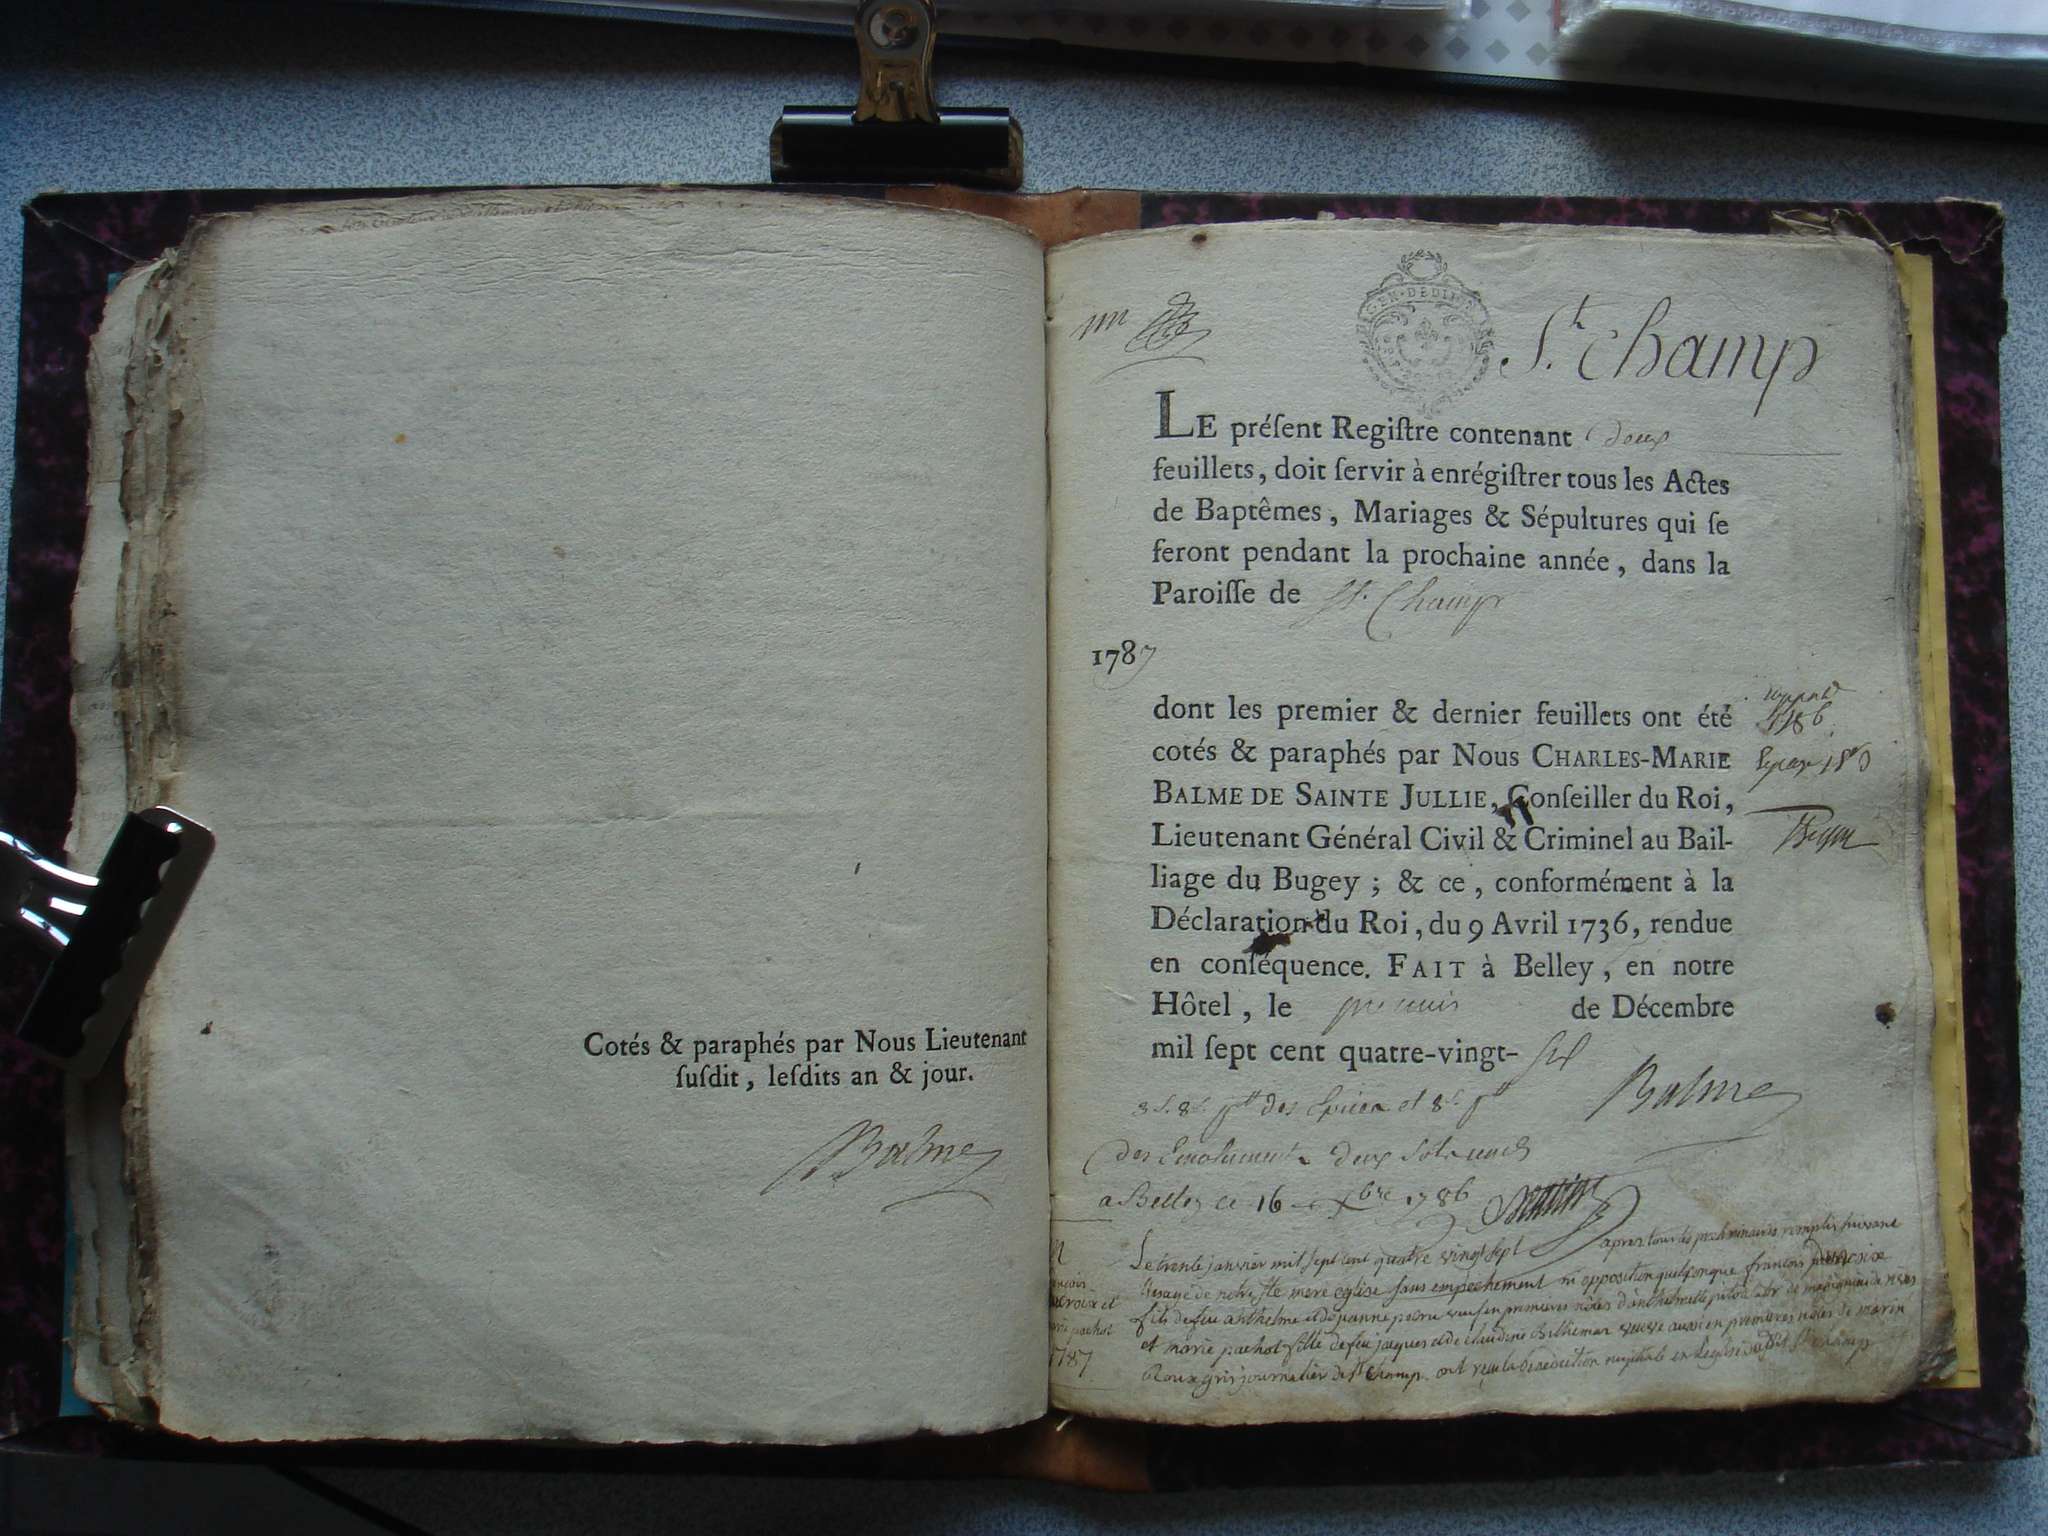 Cotés & paraphés par Nous Lieutenant
ſuſdit, leſdits an & jour.
Balme
GEN·DEDIT
St. Champ
LE préſent Regiſtre contenant deux
feuillets, doit ſervir à enrégiſtrer tous les Actes
de Baptêmes, Mariages & Sépultures qui ſe
feront pendant la prochaine année, dans la
Paroiſſe de St. Champ
1787
dont les premier & dernier feuillets ont été
cotés & paraphés par Nous CHARLES-MARIE
BALME DE SAINTE JULLIE, Conſeiller du Roi,
Lieutenant Général Civil & Criminel au Bail-
liage du Bugey ; & ce, conformément à la
Déclaration du Roi, du 9 Avril 1736, rendue
en conſéquence. FAIT à Belley, en notre
Hôtel, le premier de Décembre
mil ſept cent quatre-vingt-six
Balme
des Epices et
des Emoluments deux sols
a Belley ce 16 xbre 1786
Le trente janvier mil sept cent quatre vingt sept apres tous les preliminaires remplis suivant
l'usage de notre ste mere eglise sans empechement ni opposition quelconque françois
fils de feu anthelme et de veuf en premieres nôces d'anthelmette
et marie pachot fille de feu jacques et de claudine Billiemar veuve aussi en premieres nôces de marin
Roux gris journalier de St Champ. ont reçu la benediction nuptiale en l'eglise dudit St Champ
pachot
1787